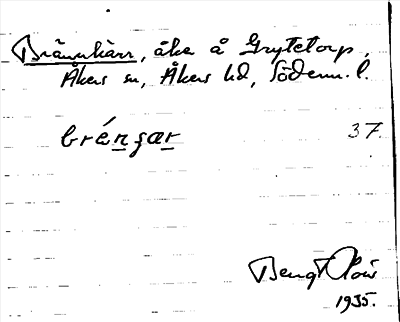 Brännkärr, åker å Grytetorp,
Åkers sn, Åkers hd, Söderm. l.
brénʒær 37.
Bengt
1935.